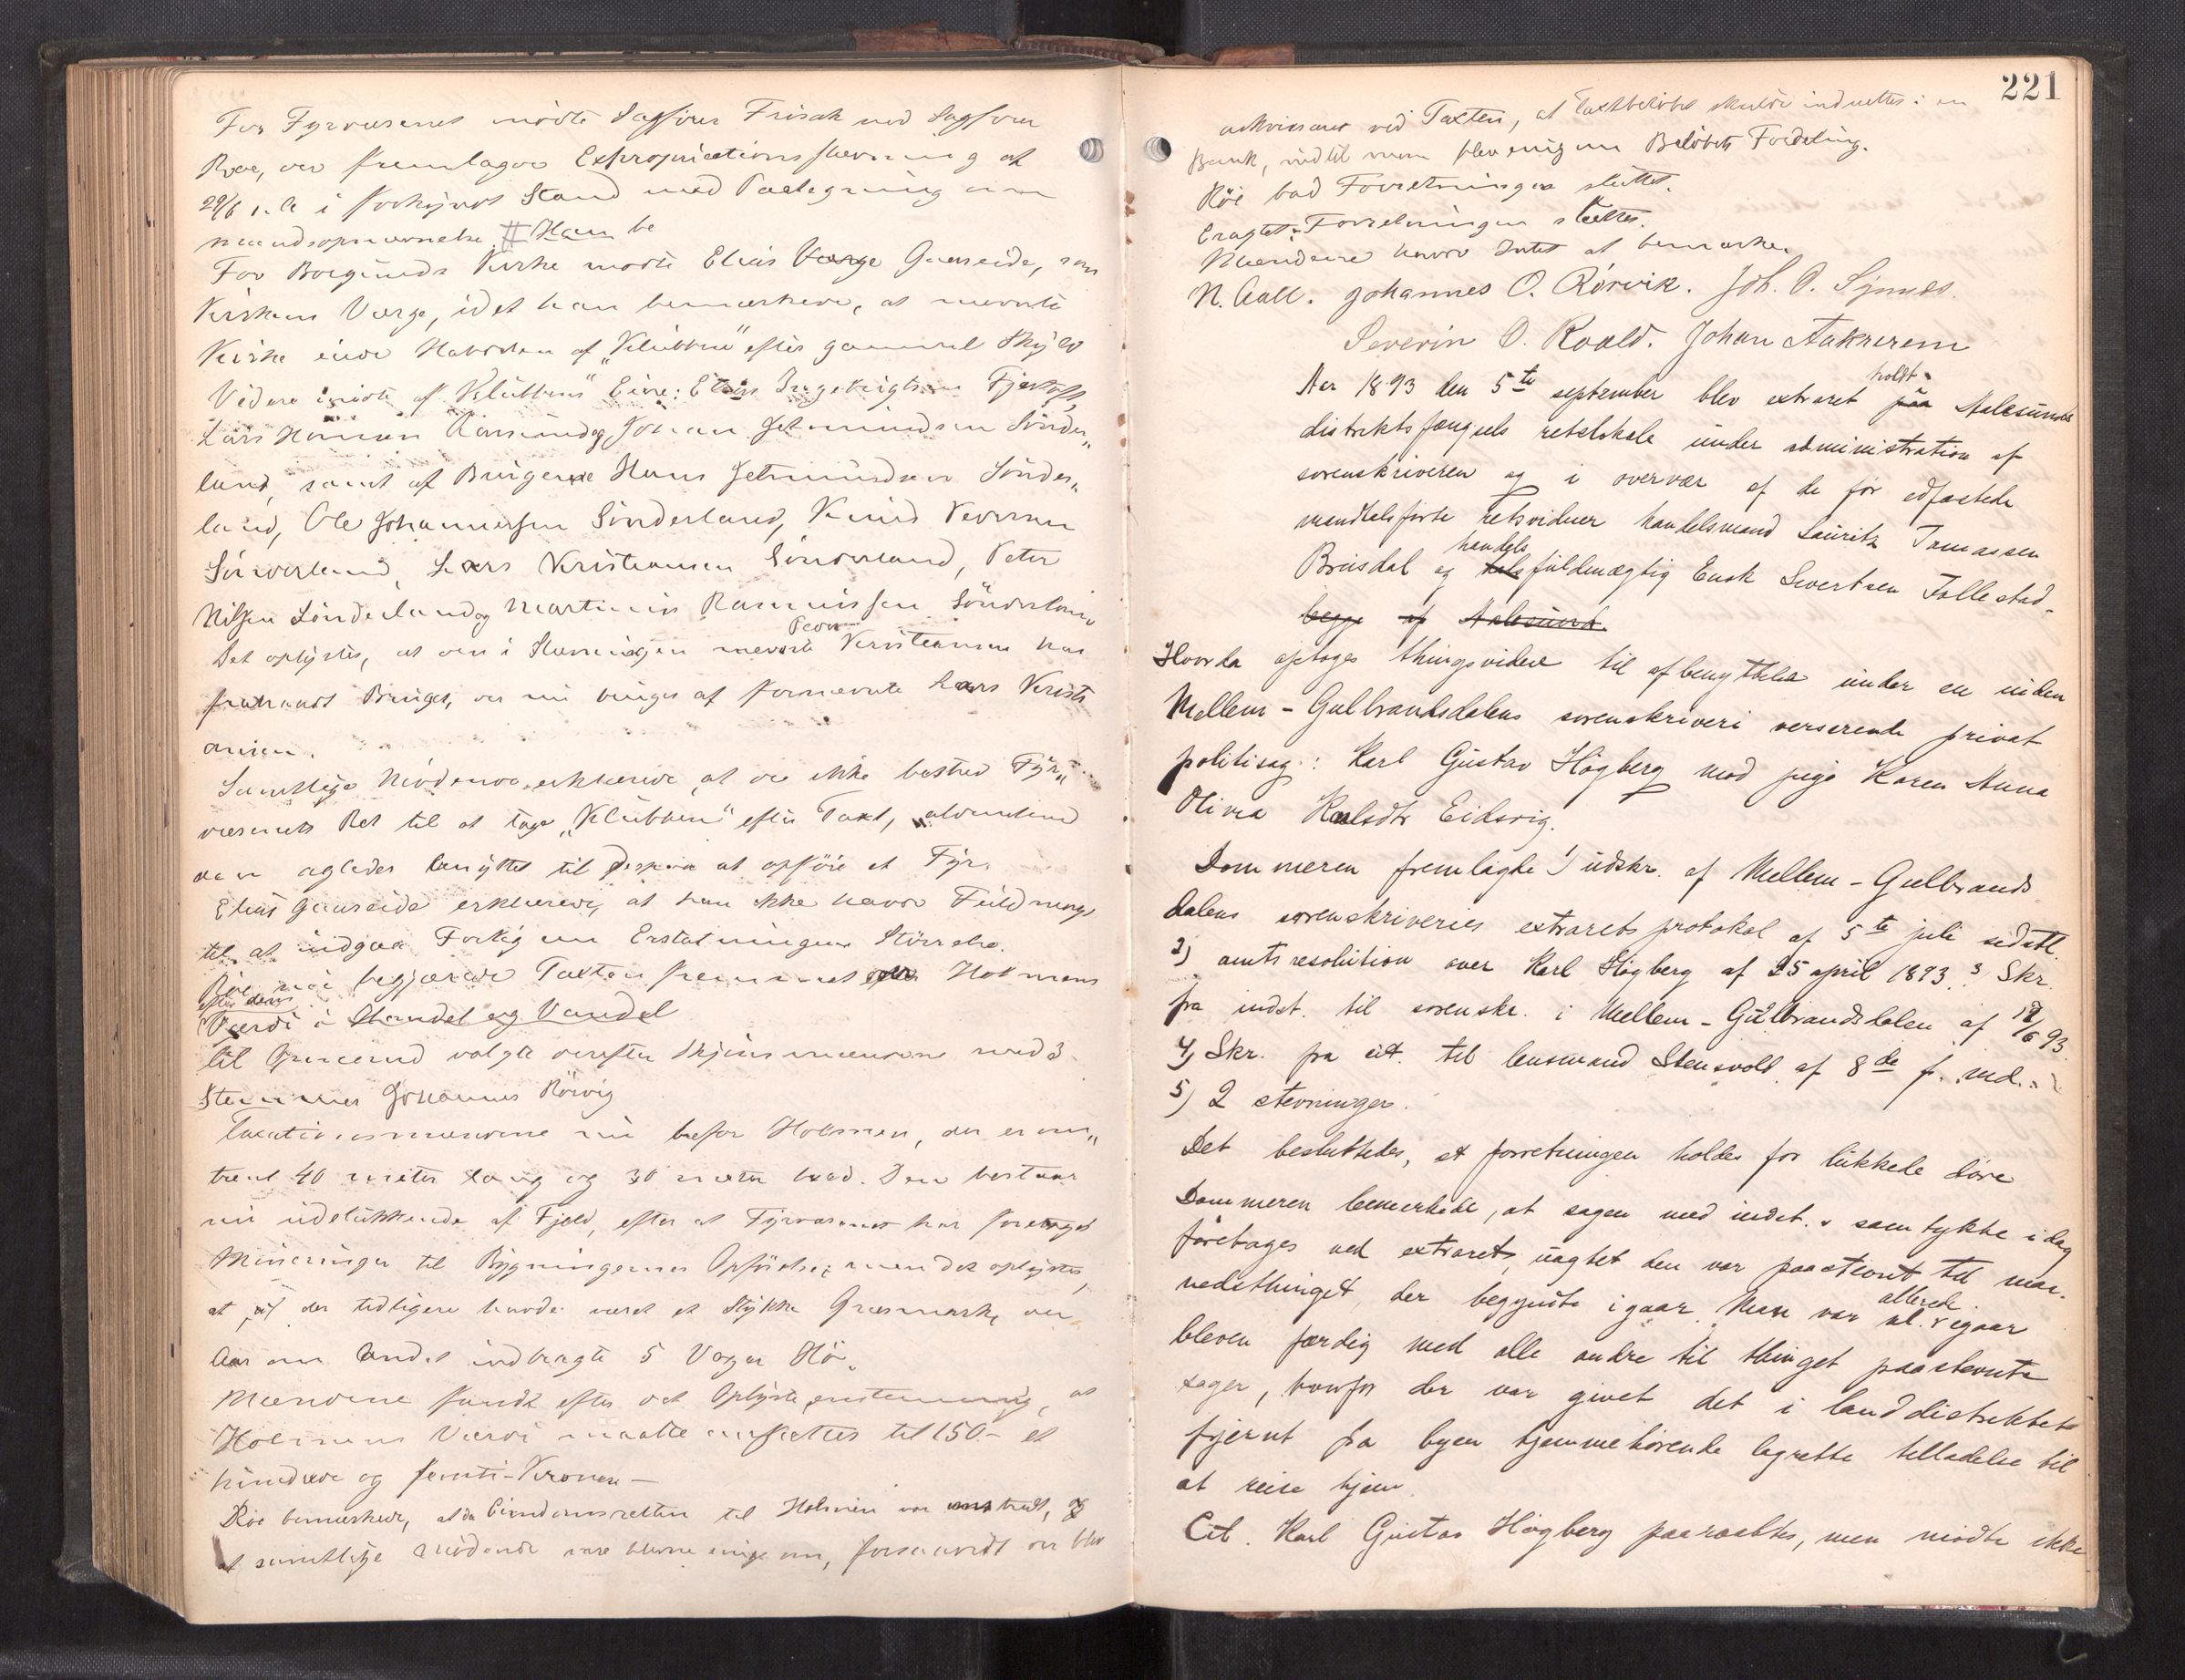 For Fyrvæsenet mødte Sagfører Frisak ved Sagfører
Roe, der fremlagde Expropriationsstevning af
29/6 d. A i forkyndt Stand med Paategning om
mandsopnævnelse. # Han be
For Borgunds Kirke mødte Elias Gaaseide, som
Kirkens Værge, idet han bemærkede, at nævnte
Kirke eiede Halvdelen af "Klubben" efter gammel Skyld
Videre mødte af "Klubbens" Eiere: Elias Ingebrigtsen Fjærtoft,
Lars Hansen Aamund og Johan Jetmundsen Sønder„
land, samt af Brugerne Hans Jetmundsen Sønder„
land, Ole Johannessen Sønderland, Knud Iversen
Sønderland, Lars Kristiansen Sønderland, Peter
Nilsen Sønderland og Martinus Rasmussen Sønderland
Det oplystes, at den i Stevningen nævnte Peder Kristiansen har
fratraadt Bruget, der nu bruges af fornævnte Lars Kristi
ansen.
Samtlige Mødende erklærede, at de ikke bestred Fyr„
væsenets Ret til at tage "Klubben" efter Taxt, alenlund
den agtedes benyttet til derpaa at opføre et Fyr.
Elias Gaaseide erklærede, at han ikke havde Fuldmagt
til at indgaa Forlig om Erstatningens Størrelse.
Roe begjærede Taxten fremmet over Holmens
efter dens
Værdi i Handel og Vandel
til Opmand valgte derefter Skjønsmændene med 3
Stemmer Johannes Rörvig
Taxationsmændene nu befor Holmen, der er om„
trent 40 meter lang og 30 meter bred. Den bestaar
nu udelukkende af Fjeld, efter at Fyrvæsenet har foretaget
Mineringer til Bygningernes Opførelse; men det oplystes,
at der tidligere havde været et Stykke Græsmark, der
Aar om andet indbragte 5 Voger Hø.
Mændene fandt efter det Oplyste enstemmig, at
Holmens Værdi maatte ansættes til 150.- et
hundrede og femti - Kroner —
Roe bemærkede, at da Eiendomsretten til Holmen var omtvistet, og
at samtlige Mødende vare blevne enige om, forsaavidt der blev
221
ved Taxten, at Taxtbeløbet skulde indsættes i en
Bank, indtil man blev enig om Beløbets Fordeling.
Röe bad Forretningen sluttet.
Eragtet: Forretningen sluttes.
Mændene havde Intet at bemærke.
N. Aall. Johannes O. Rörvik. Joh. O. Synnes.
Severin O. Roald. Johan Aakrerem
Aar 1893 den 5te september blev extraret holdt i Aalesunds
distriktsfængsels retslokale under administration af
sorenskriveren og i overvær af de før edfæstede
mandtalsførte retsvidner handelsmand Lauritz Tomassen
Breisdal og handelsfuldmægtig Enok Sivertsen Tollestad.
begge af Aalesund.
Hvorda optoges thingsvidne til afbenyttelse under en inden
Mellem-Gulbrandsdalens sorenskriveri verserende privat
politisag: Karl Gustav Högberg mod pige Karen Anna
Olivia Karlsdtr Eidsvig.
Dommeren fremlagde 1) udskr. af Mellem-Gulbrands
dalens sorenskriveries extraretsprotokol af 5te juli sidstl.
2) amtsresolution over Karl Högberg af 25 april 1893. 3 Skr.
fra indst. til sorenskr. i Mellem-Gulbrandsdalen af 19/6 93
4) Skr. fra cit. til lensmand Stensvold af 8de f. md.
5) 2 stevninger.
Det besluttedes, at forretningen holdes for lukkede døre
Dommeren bemerkede, at sagen med indst.s samtykke idag
foretages ved extraret, uagtet den var paastevnt til maa-
nedsthinget, der begyndte igaar. Man var nl. allerede igaar
bleven færdig med alle andre til thinget paastevnte
sager, hvorfor der var givet det i landdistriktet
fjernt fra byen hjemmehørende lagrette tilladelse til
at reise hjem.
Cit. Karl Gustav Högberg paaraabtes, men mødte ikke